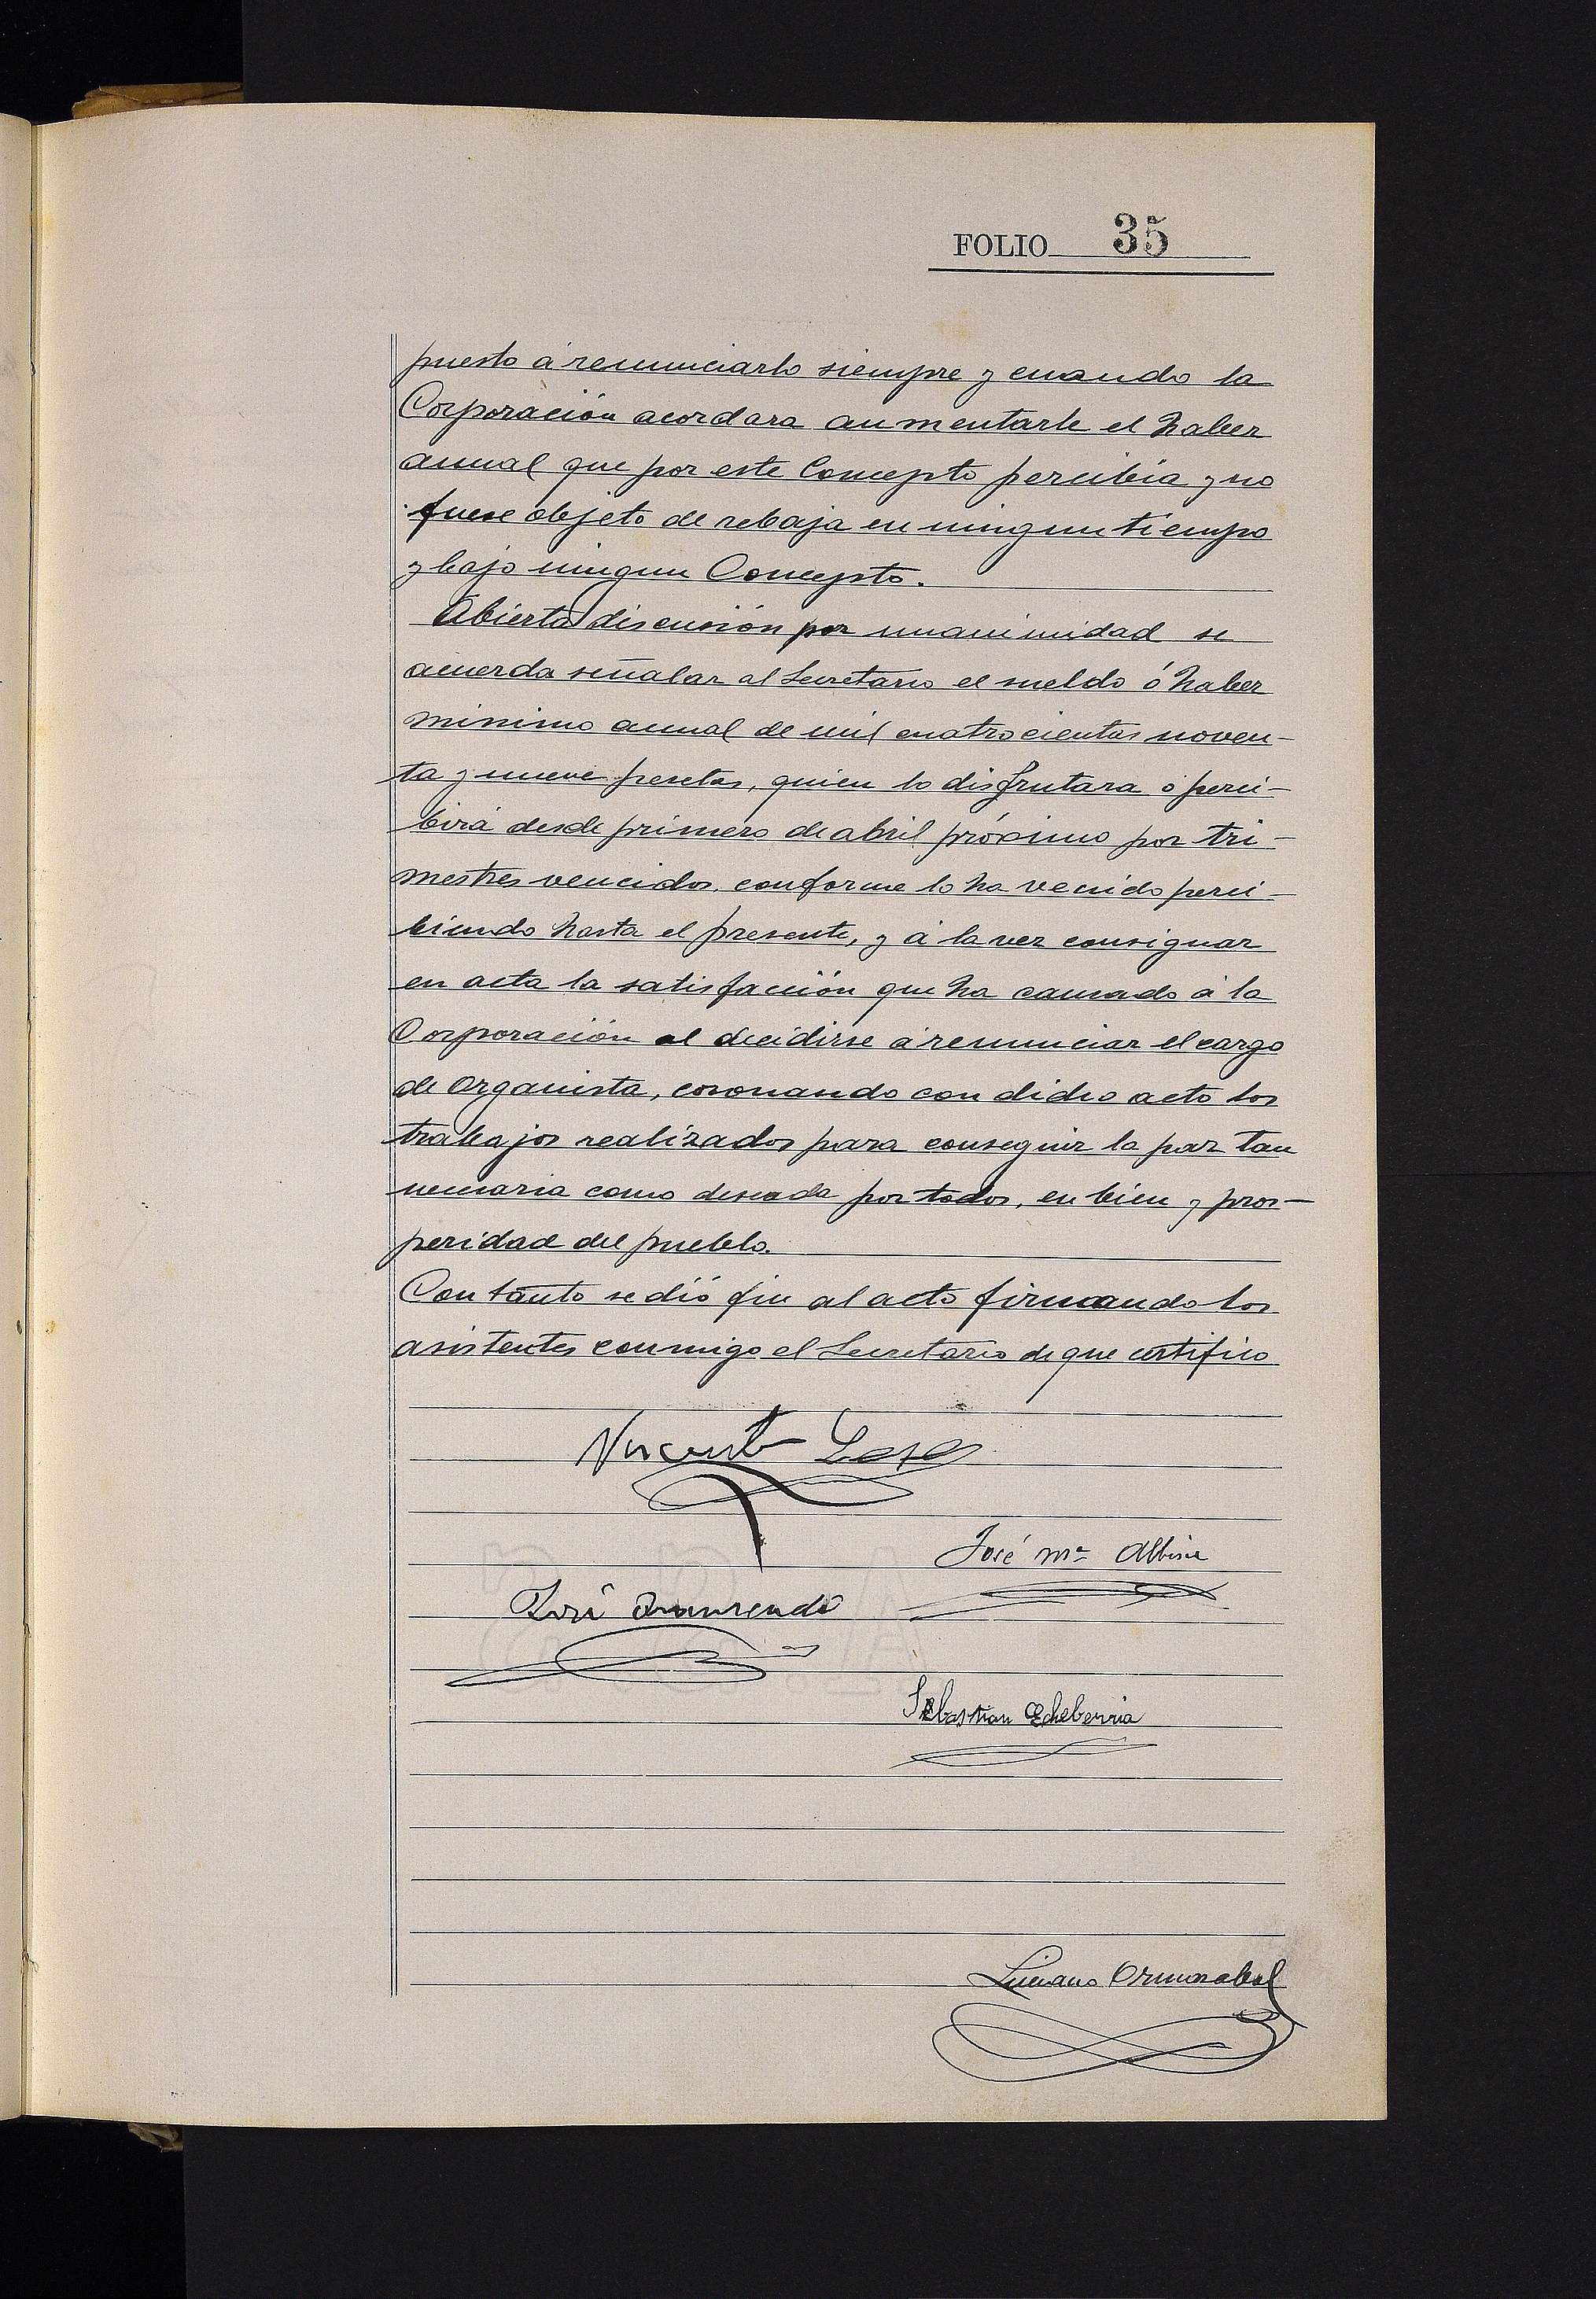 FOLIO 35
puesto á renunciarlo siempre y cuando la
Corporación acordara aumentarle el haber
anual que por este Concepto percibia y no
fuese objeto de rebaja en ningun tiempo
y bajo ningun Concepto.
Abierta discusión por unanimidad se
acuerda señalar al Secretario el sueldo ó haber
minimo anual de mil cuatrocientas noven-
ta y nueve pesetas, quien lo disfrutara ó perci-
birá desde primero de abril próximo por tri-
mestres vencidos, conforme lo ha venido perci-
biendo hasta el presente, y á la vez consignar
en acta la satisfacción que ha causado á la
Corporación al decidirse á renunciar el cargo
de Organista, coronando con dicho acto los
trabajos realizados para conseguir la paz tan
necesaria como deseada por todos, en bien y pros-
peridad del pueblo.
Con tanto se dió fin al acto firmando los
asistentes conmigo el Secretario de que certifico
Vicente
José Mª
José
Sebastian Echeberria
Luciano Ormazabal